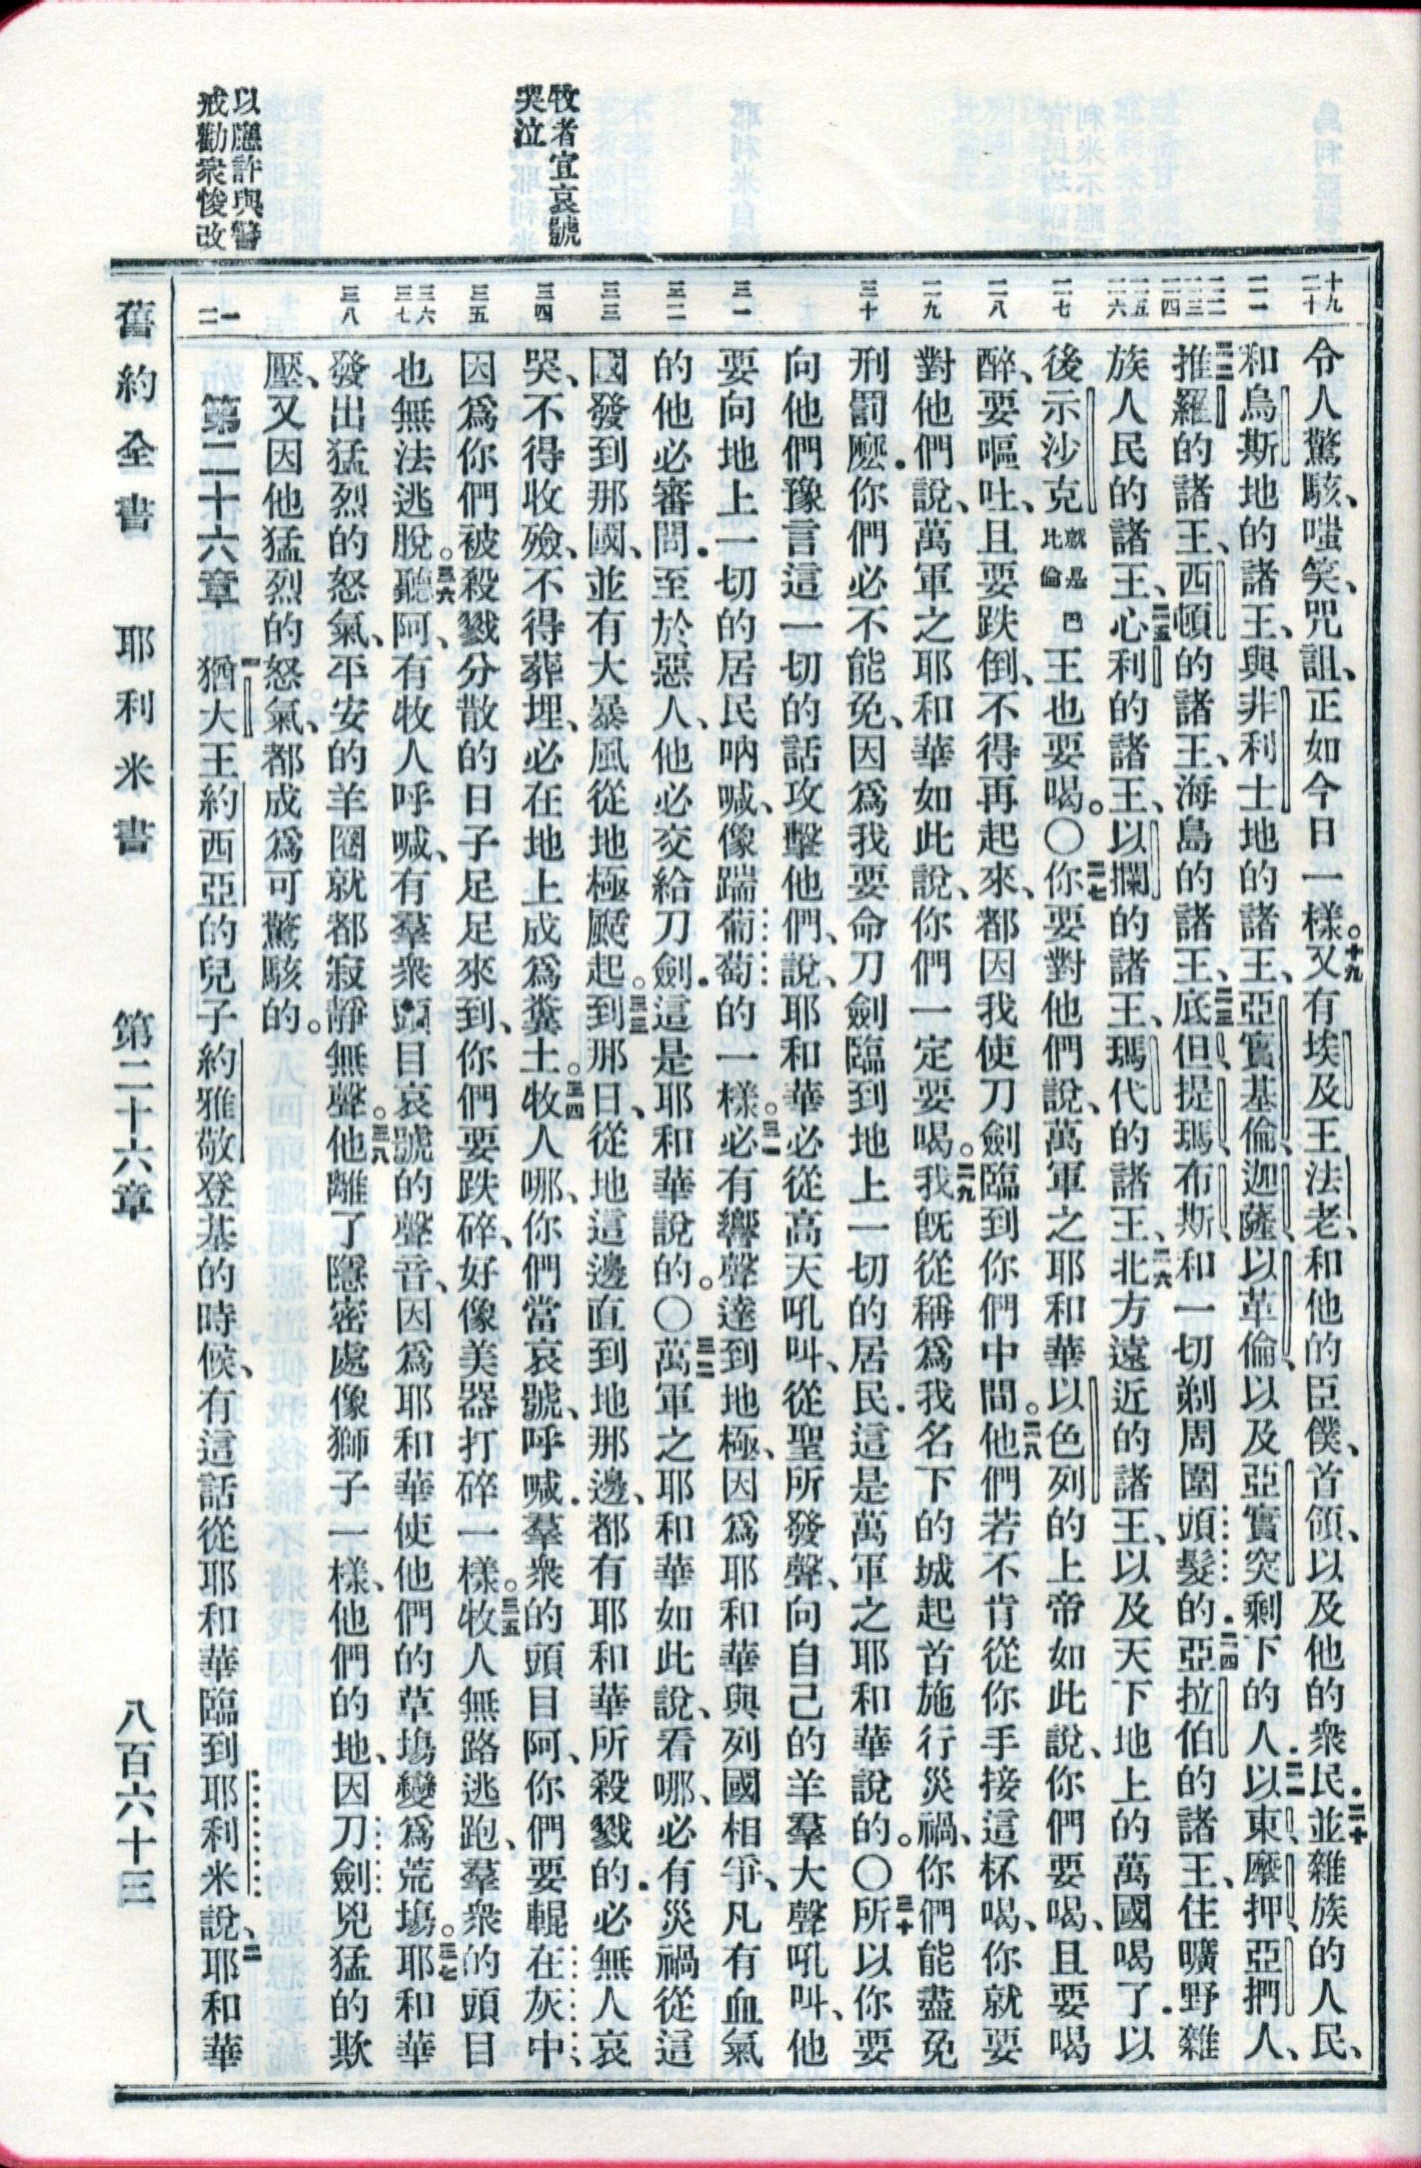 牧者宜哀號
哭泣
以應許與警
戒勸衆悛改
十九
二十
二一
二二
二三
二四
二五
二六
二七
二八
二九
三十
三一
三二
三三
三四
三五
三六
三七
三八
一
二
令人驚駭、嗤笑、咒詛、正如今日一樣。十九又有埃及王法老、和他的臣僕、首領、以及他的衆民.二十並雜族的人民、
和烏斯地的諸王、與非利士地的諸王、亞實基倫、迦薩、以革倫、以及亞實突剩下的人.二一以東、摩押、亞捫人、
二二推羅的諸王、西頓的諸王、海島的諸王、二三底但、提瑪、布斯、和一切剃周圍頭髮的.二四亞拉伯的諸王、住曠野雜
族人民的諸王、二五心利的諸王、以攔的諸王、瑪代的諸王、二六北方遠近的諸王、以及天下地上的萬國喝了.以
後示沙克就是巴比倫王也要喝。〇二七你要對他們說、萬軍之耶和華以色列的上帝如此說、你們要喝、且要喝
醉、要嘔吐、且要跌倒、不得再起來、都因我使刀劍臨到你們中間。二八他們若不肯從你手接這杯喝、你就要
對他們說、萬軍之耶和華如此說、你們一定要喝。二九我旣從稱爲我名下的城起首施行災禍、你們能盡免
刑罰麽.你們必不能免、因爲我要命刀劍臨到地上一切的居民.這是萬軍之耶和華說的。〇三十所以你要
向他們豫言這一切的話攻擊他們、說、耶和華必從高天吼叫、從聖所發聲、向自己的羊羣大聲吼叫、他
要向地上一切的居民吶喊、像踹葡萄的一樣。三一必有響聲達到地極、因爲耶和華與列國相爭、凡有血氣
的他必審問.至於惡人、他必交給刀劍.這是耶和華說的。〇三二萬軍之耶和華如此說、看哪、必有災禍從這
國發到那國、並有大暴風從地極颳起。三三到那日、從地這邊直到地那邊、都有耶和華所殺戮的.必無人哀
哭、不得收殮、不得葬埋、必在地上成爲糞土。三四牧人哪、你們當哀號、呼喊.羣衆的頭目阿、你們要輥在灰中、
因爲你們被殺戮分散的日子足足來到、你們要跌碎、好像美器打碎一樣。三五牧人無路逃跑、羣衆的頭目
也無法逃脫。三六聽阿、有牧人呼喊、有羣衆頭目哀號的聲音、因爲耶和華使他們的草場變爲荒場。三七耶和華
發出猛烈的怒氣、平安的羊圈就都寂靜無聲。三八他離了隱密處像獅子一樣、他們的地、因刀劍兇猛的欺
壓、又因他猛烈的怒氣、都成爲可驚駭的。
第二十六章　一猶大王約西亞的兒子約雅敬登基的時候、有這話從耶和華臨到耶利米說、二耶和華
舊約全書　耶利米書　第二十六章　八百六十三